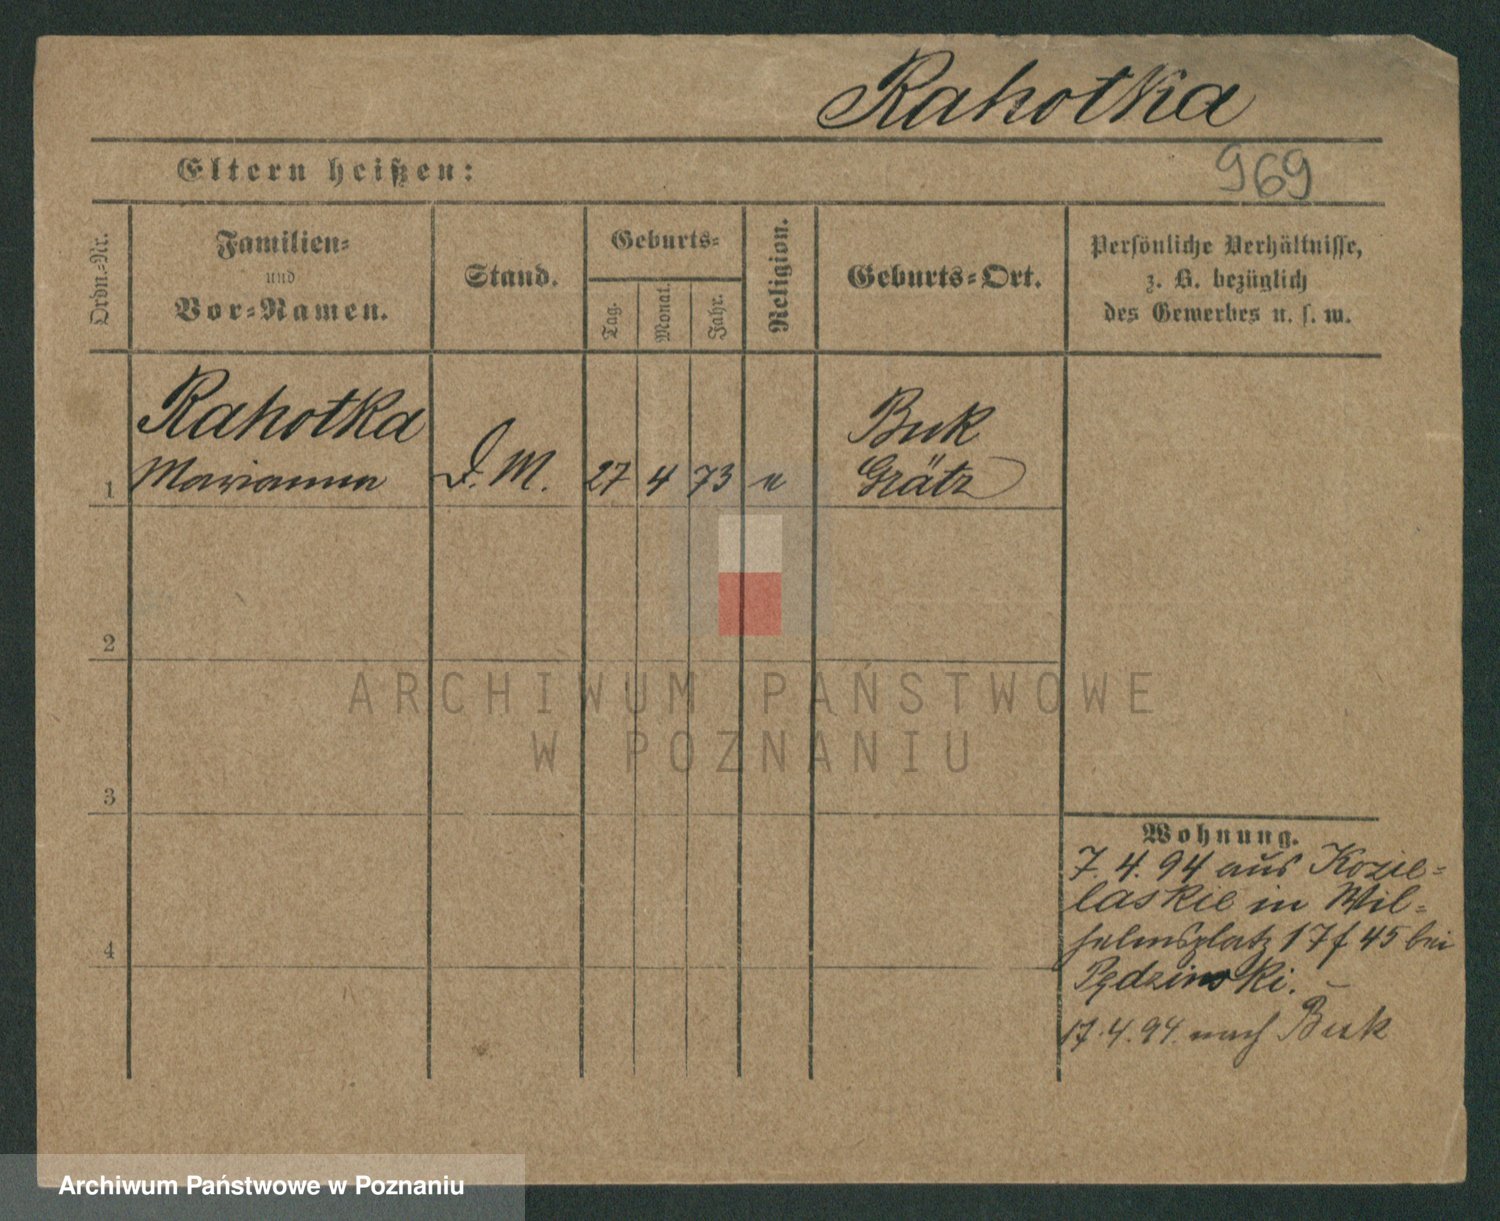 Rahotka
Eltern heißen:
969
Ordn.-Nr.
Familien-
und
Vor-Namen.
Stand.
Geburts-
Tag.
Monat.
Jahr.
Religion.
Geburts-Ort.
Persönliche Verhältnisse,
z. B. bezüglich
des Gewerbes u. s. w.
Rahotka
Buk
1 Marianna D. M. 27 4 73 Grätz
2
3
4
Wohnung.
7. 4. 94 aus Kozie-
laskie in Wil-
helmsplatz 17 f 45 bei
Pędzinski. –
17.4.94. nach Buk
ARCHIWUM PAŃSTWOWE
W POZNANIU
Archiwum Państwowe w Poznaniu